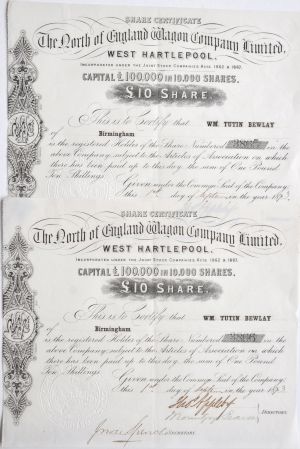 SHARE CERTIFICATE
The North of England Wagon Company Limited,
WEST HARTLEPOOL.
INCORPORATED UNDER THE JOINT STOCK COMPANIES ACTS 1862 & 1867.
CAPITAL £100,000 IN 10,000 SHARES.
£10 SHARE.
This is to Certify that WM. TUTIN BEWLAY
of Birmingham
is the registered Holder of the Share Numbered in the
above Company, subject to the Articles of Association on which
there has been paid up to this day, the sum of One Pound
Ten Shillings.
Given under the Common Seal of the Company,
this 1st day of Septr in the year 1873
SHARE CERTIFICATE
The North of England Wagon Company Limited,
WEST HARTLEPOOL.
INCORPORATED UNDER THE JOINT STOCK COMPANIES ACTS 1862 & 1867.
CAPITAL £100,000 IN 10,000 SHARES.
£10 SHARE.
This is to Certify that WM. TUTIN BEWLAY
of Birmingham
is the registered Holder of the Share Numbered in the
above Company, subject to the Articles of Association on which
there has been paid up to this day, the sum of One Pound
Ten Shillings.
Given under the Common Seal of the Company,
this 1st day of Septr in the year 1873
DIRECTORS.
SECRETARY.